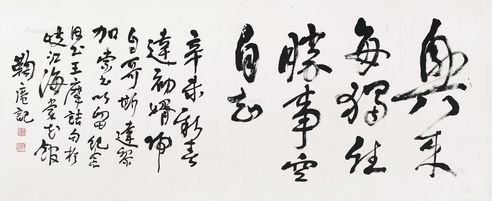 興來
每獨往
勝事空
自知
辛未新春
達初婿偕
自哥斯達黎
加索書以留紀念
因書王摩詰句於
岐江海棠花館
鞠廬記